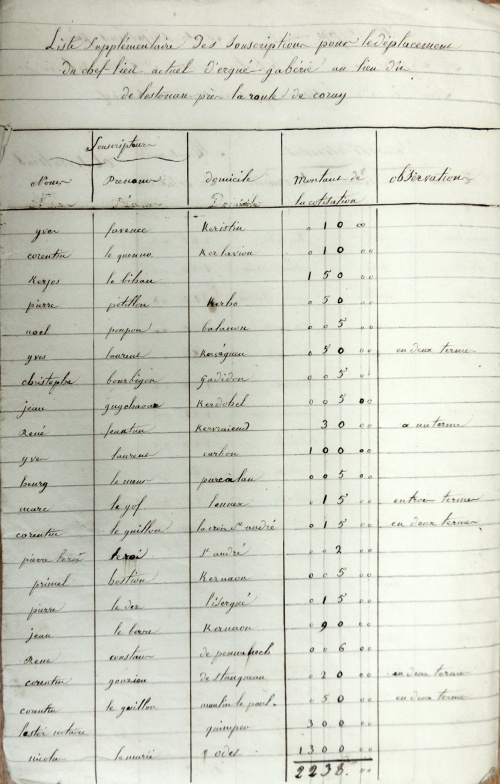 Liste Supplémentaire des Souscription pour le déplacement
du chef lieu actuel d'ergué-gabéric au lieu dit
de lestonan près la route de coray
Souscripteur
Noms Prenoms domicile Montant de la cotisation observation
yves favenec Keristin 010 00
corentin le guenno Kerlavian 010 00
Kerjos le bihan 150 00
pierre petillon Kerho 050 00
noel poupon balanou 005 00
yves laurent Kervéguen 050 00 en deux terme
christophe bourbigon Gadidon 005 00
jean Kerdohel 005 00
René Kerveaiend 30 00 a un terme
yves laurens carbon 100 00
le meur parc alan 005 00
marc le gof lennec 015 00 en trois termes
corentin le guillou la croix st andré 015 00 en deux termes
pierre le roi st andré 002 00
primel bostion Kernaon 005 00
pierre le der lisergué 015 00
jean le berre Kernaon 090 00
Rene constan de pennanech 006 00
corentin gouzien de stangueau 020 00 en deux terme
corentin le guillou moulin le paul 050 00 en deux terme
lestor notaire quimper 300 00
nicola le marié odet 1300 00
2238. 00